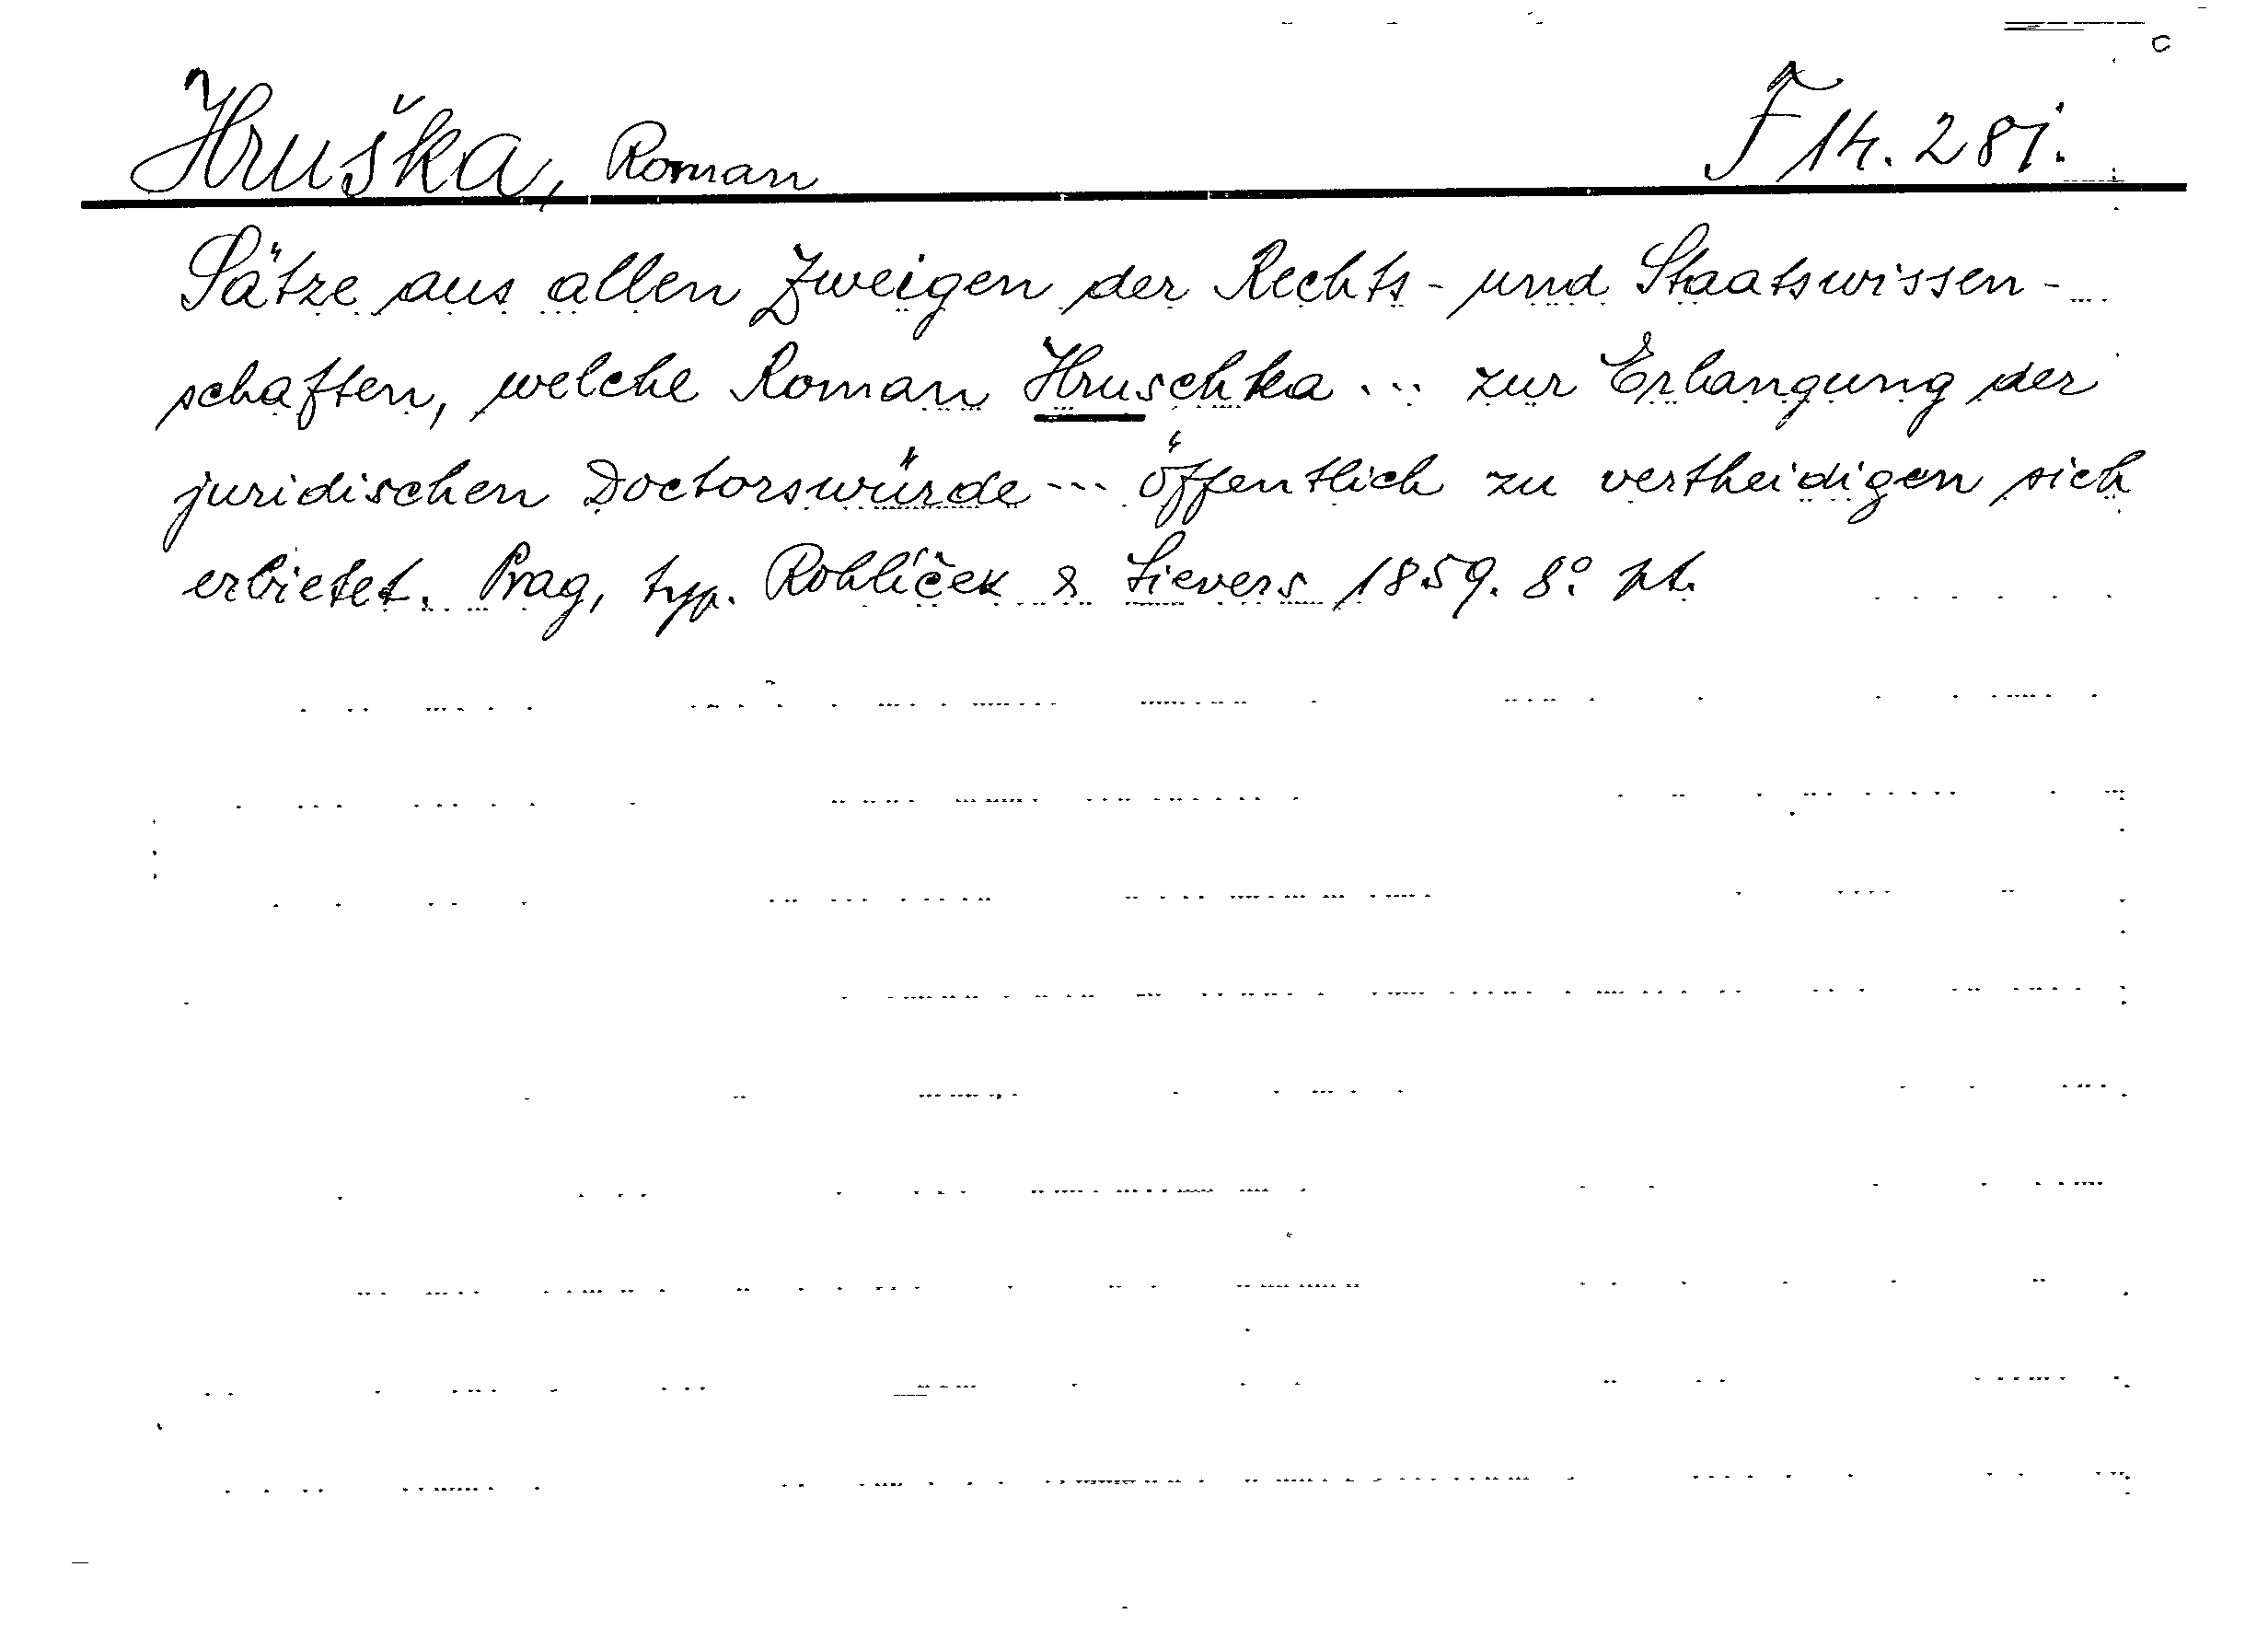 Hruška, Roman F 14.281.
Sätze aus allen Zweigen der Rechts- und Staatswissen-
schaften, welche Roman Hruschka ... zur Erlangung der
juridischen Doctorswürde ... öffentlich zu vertheidigen sich
erbietet. Prag, typ. Rohlíček & Sievers 1859. 8° pt.